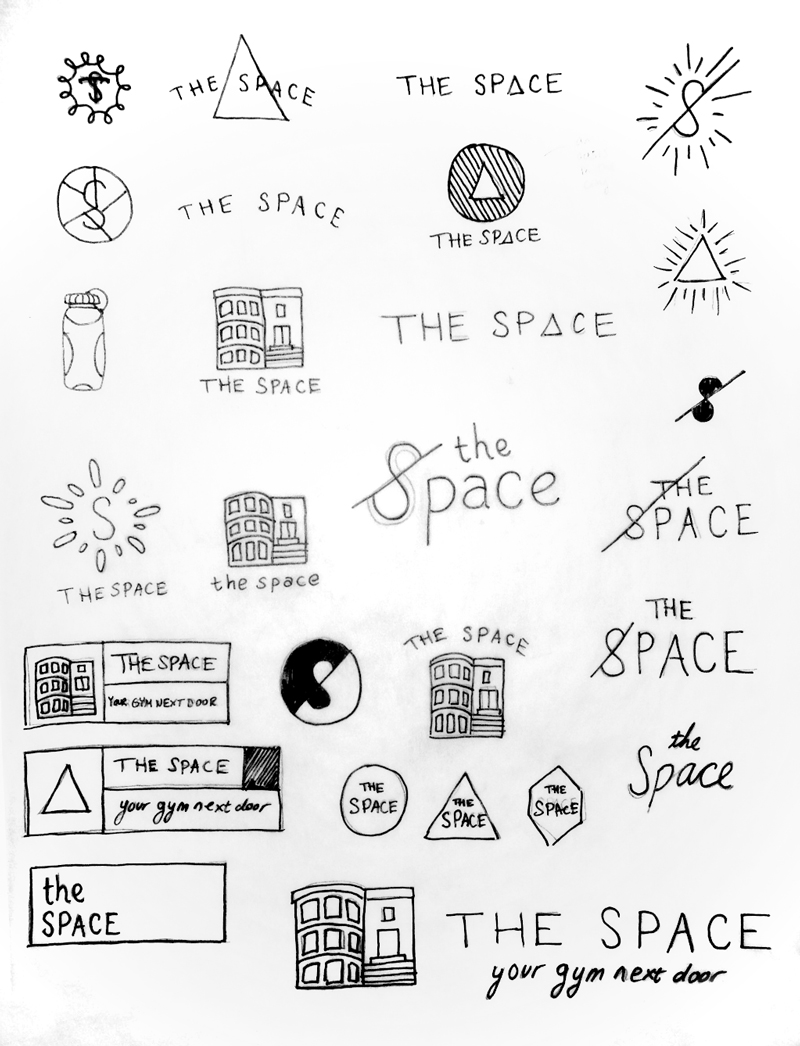 TS
THE SPACE
THE SPACE
S
S
THE SPACE
THE SPACE
THE SPACE
THE SPACE
the
Space
THE
SPACE
S
THE SPACE
the space
THE
SPACE
THE SPACE
THE SPACE
YOUR GYM NEXT DOOR
S
the
Space
THE SPACE
your gym next door
THE
SPACE
THE
SPACE
THE
SPACE
the
SPACE
THE SPACE
your gym next door